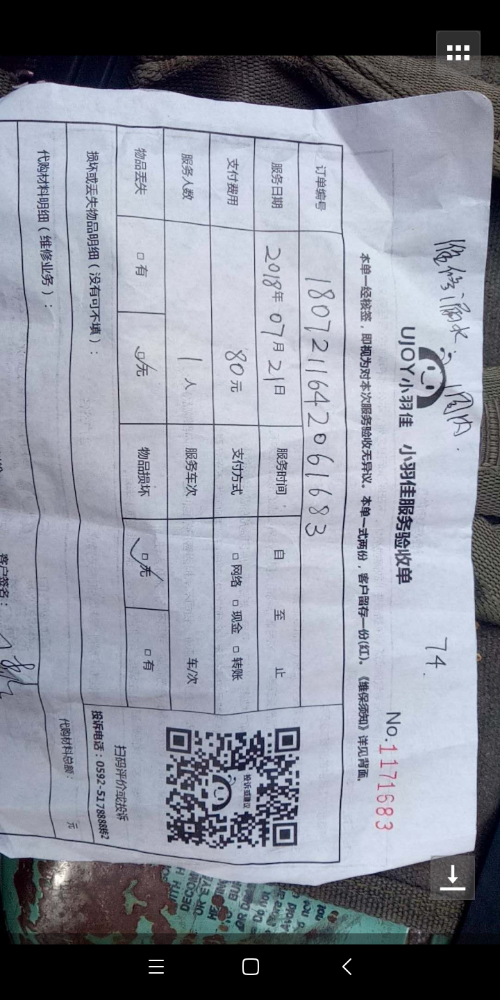 维修漏水
周内.
74.
UJOY小羽佳 小羽佳服务验收单
No.1171683
本单一经核签，即视为对本次服务验收无异议。本单一式两份，客户留存一份(红)。《维保须知》详见背面。
订单编号 1807211642061683
服务日期 2018年07月21日 服务时间 自 至 止
支付费用 80元 支付方式 □网络 □现金 □转账
服务人数 1人 服务车次 车/次
物品丢失 □有 □无 物品损坏 □无 □有
投诉或建议
扫码评价或投诉
损坏或丢失物品明细（没有可不填）：
代购材料明细（维修业务）：
代购材料总额： 元
客户签名：
WITH H
DECOM
OR EYE